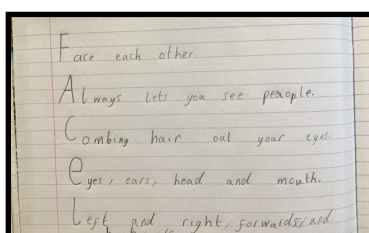 Face each other.
Always lets you see people.
Combing hair out your eyes.
eyes, ears, head and mouth.
Left and right, forwards and